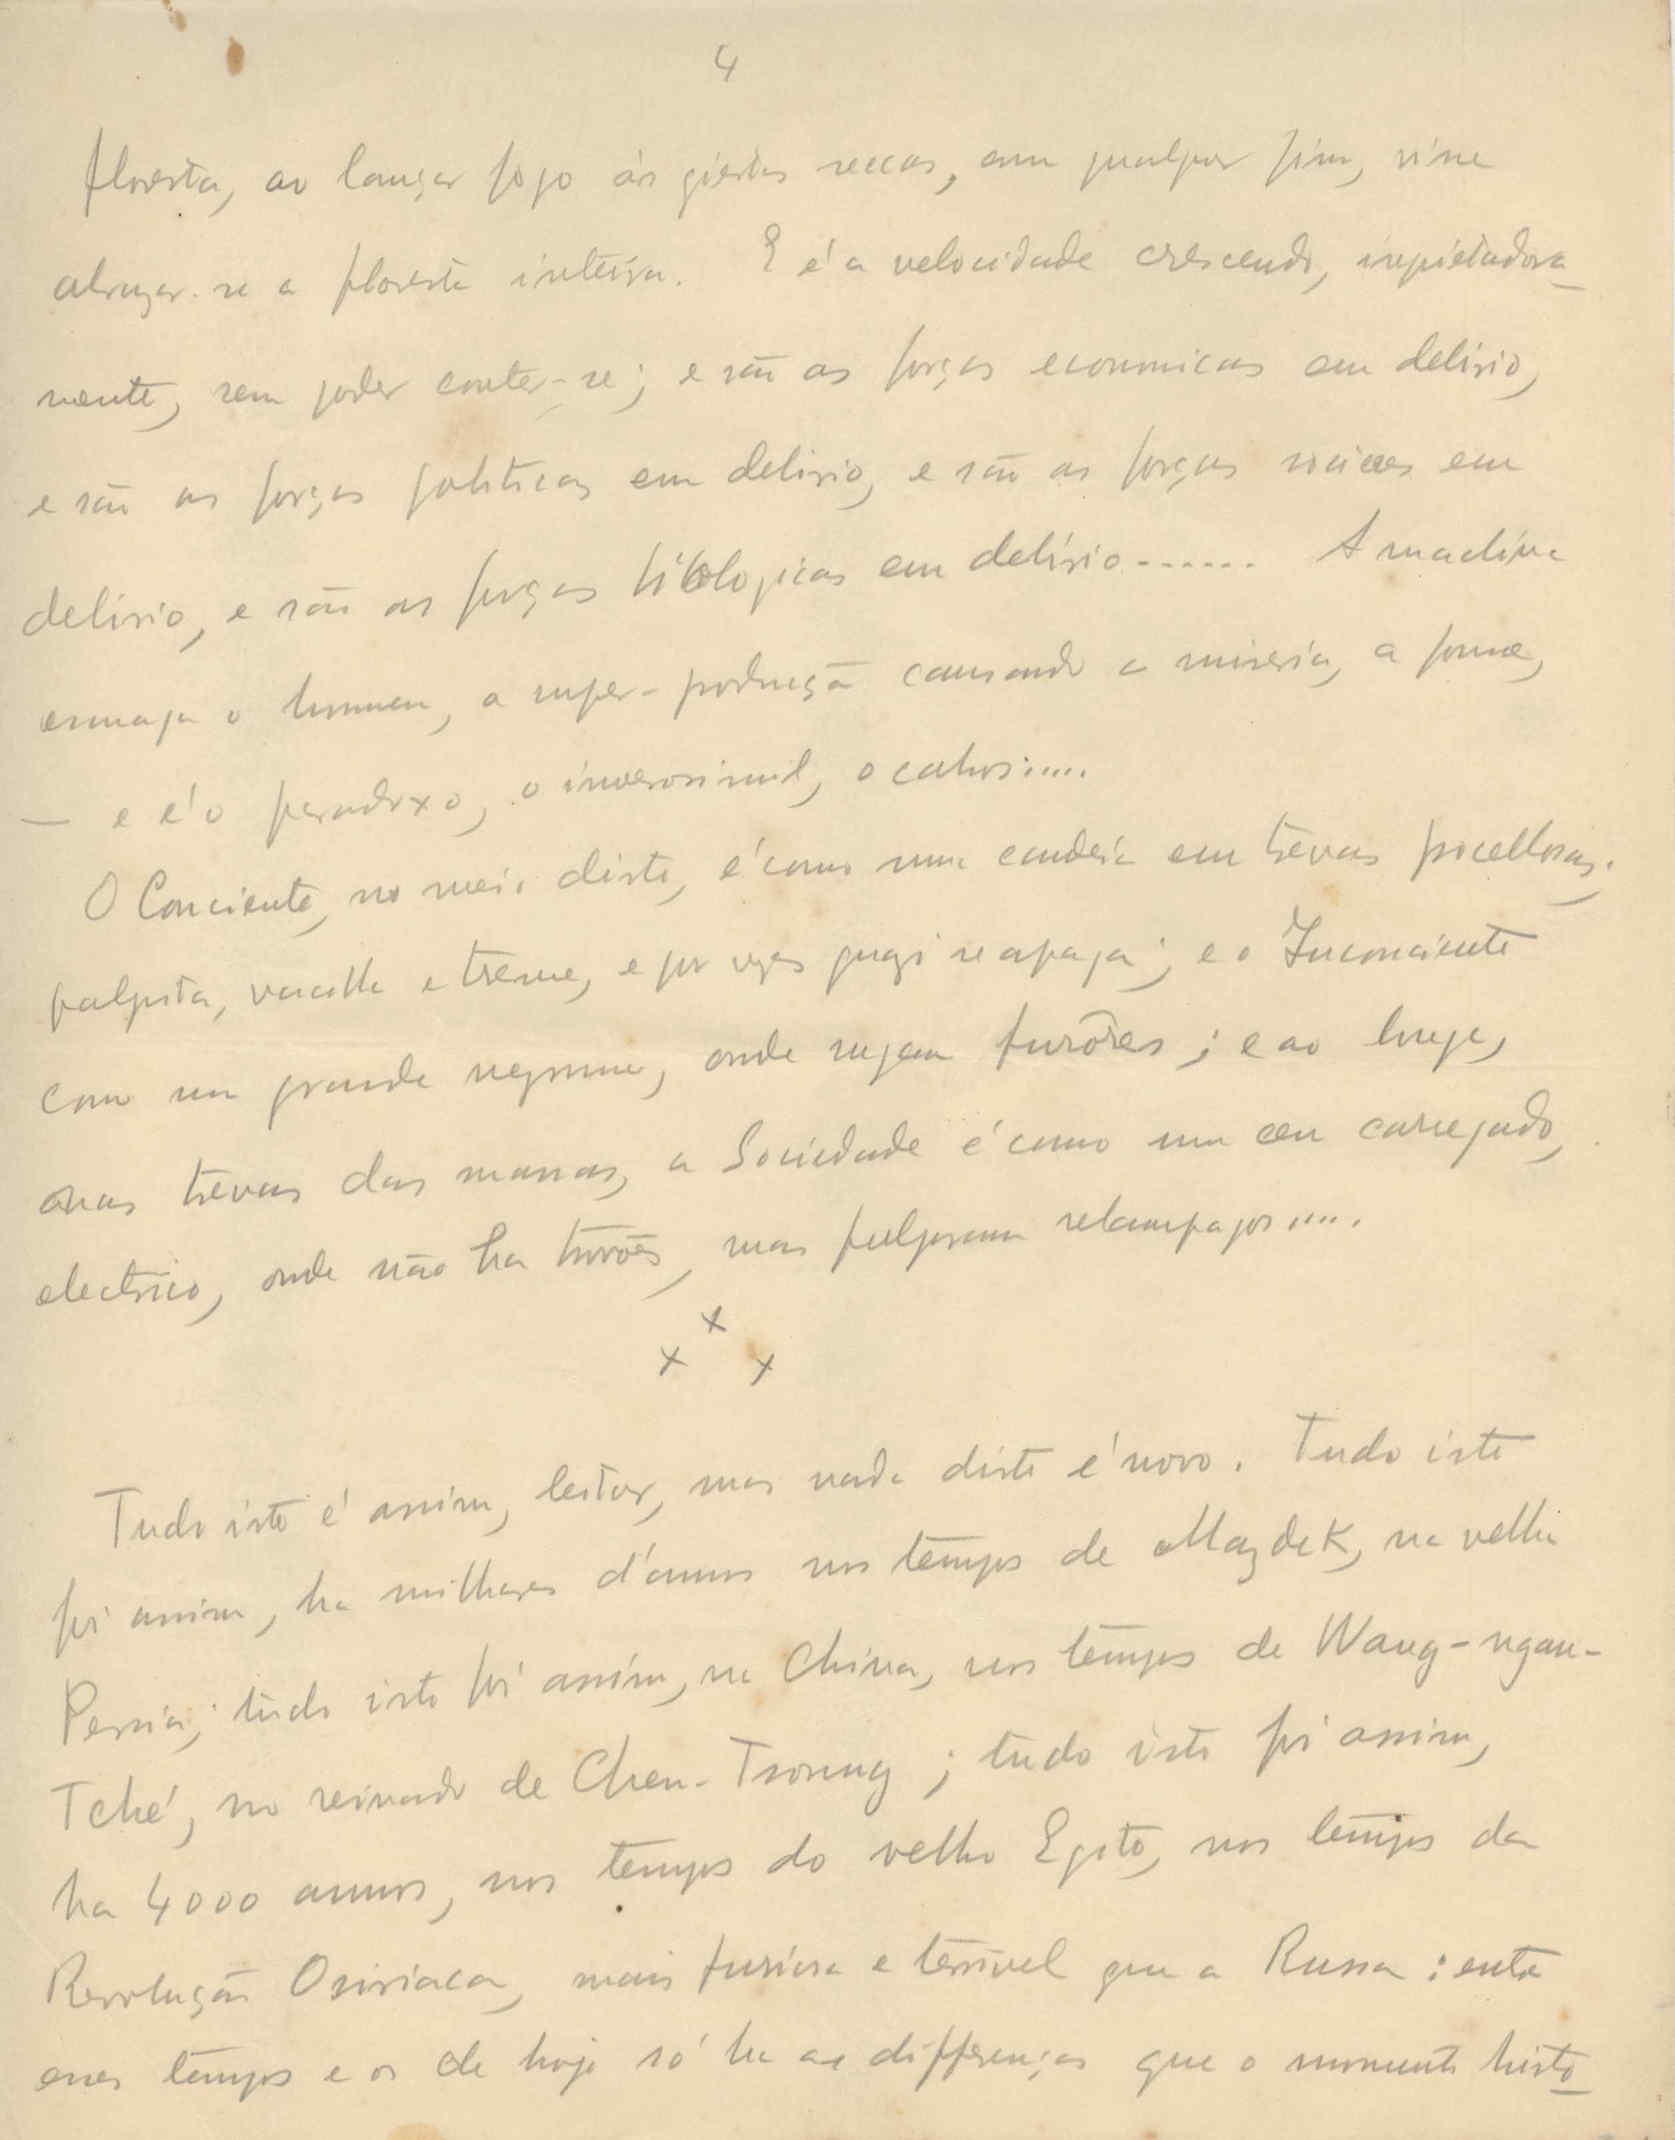 4
floresta, ao lançar fogo ás giestas seccas, sem qualquer fim, visse
abrazar-se a floresta inteira. E é a velocidade crescendo, inquietadora_
mente, sem poder conter-se; e são as forças economicas em delirio,
e são as forças politicas em delirio, e são as forças sociaes em
delirio, e são as forças biologicas em delirio ...... A machina
esmaga o homem, a super-producçã causando a miseria, a fome,
— e é o paradoxo, o inverosimil, o cahos.....
O Conciente, no meio disto, é como uma candeia em trevas procellosas:
palpita, vacilla e treme, e por vezes quazi se apaga; e o Inconciente
como um grande negrume, onde rugem furôres; e ao longe,
nas trevas das massas, a Sociedade é como um ceu carregado,
electrico, onde não ha trovões, mas fulguram relampagos.....
x
x x
Tudo isto é assim, leitor, mas nada disto é novo. Tudo isto
foi assim, ha milhares d'annos nos tempos de Mazdek, na velha
Persia; tudo isto foi assim, na China, nos tempos de Wang-ngan-
Tché, no reinado de Chen-Tsoung; tudo isto foi assim,
ha 4000 annos, nos tempos do velho Egito, nos tempos da
Revolução Osiriaca, mais furiosa e terrivel que a Russa: entre
esses tempos e os de hoje só ha as differenças que o momento histo_